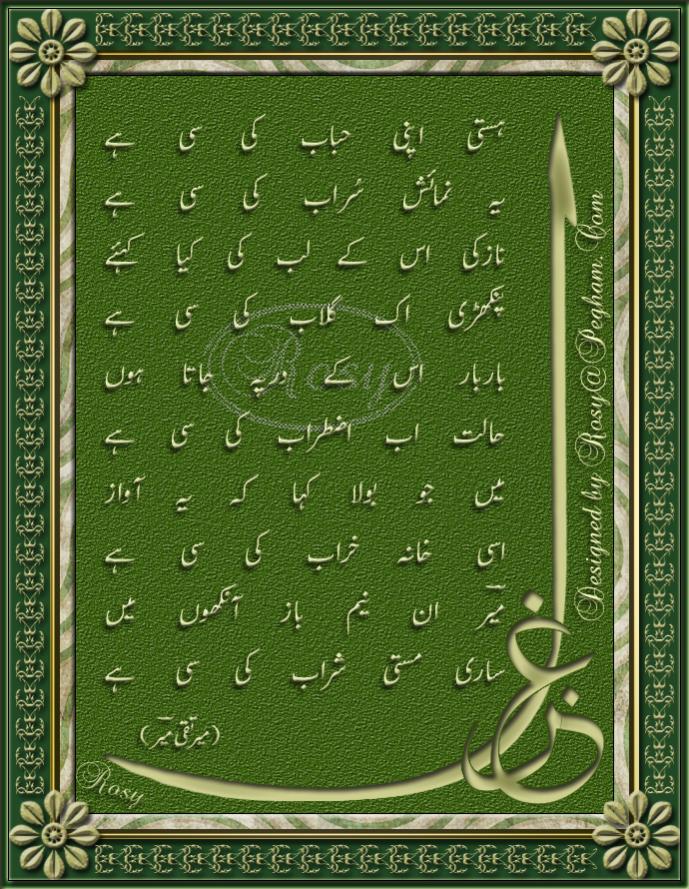 ہستی اپنی حباب کی سی ہے
یہ نمائش سُراب کی سی ہے
نازکی اس کے لب کی کیا کہئے
پنکھڑی اک گلاب کی سی ہے
باربار اس کے درپہ جاتا ہوں
حالت اب اضطراب کی سی ہے
میں جو بولا کہا کہ یہ آواز
اسی خانہ خراب کی سی ہے
میر ان نیم باز آنکھوں میں
ساری مستی شراب کی سی ہے
(میرتقی میر)
غزل
Designed by Rosy@Pegham.Com
Rosy
Rosy